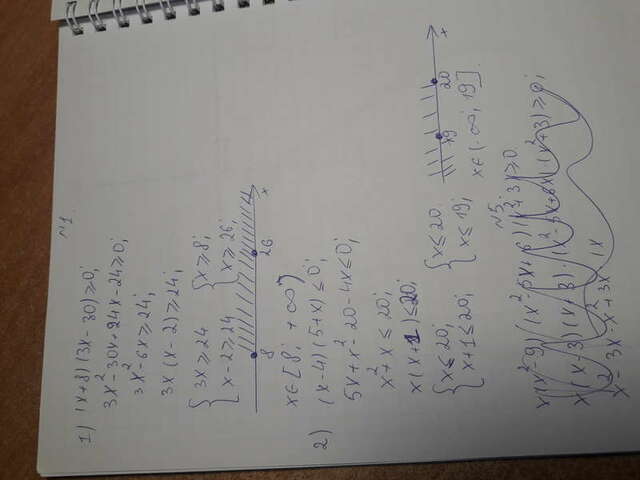 №1.
1) (x+8)(3x-30)≥0;
3x²-30x+24x-24≥0;
3x²-6x≥24;
3x(x-2)≥24;
{3x≥24 {x≥8;
{x-2≥24 {x≥26;
8 26 x
x∈[8; +∞)
2) (x-4)(5+x)≤0;
5x+x²-20-4x≤0;
x²+x≤20;
x(x+1)≤20;
{x≤20; {x≤20
{x+1≤20; {x≤19;
19 20 x
x∈(-∞; 19].
№5.
x(x²-9)(x²-5x+6)
x(x-3)(x+3)·(x²-5x+6x)(x²+3)≥0;
x²-3x·x²+3x·(x